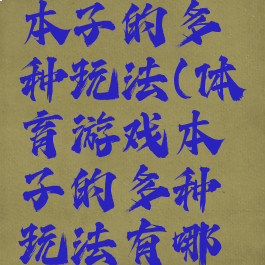 本子的多
种玩法(体
育游戏本
子的多种
玩法有哪